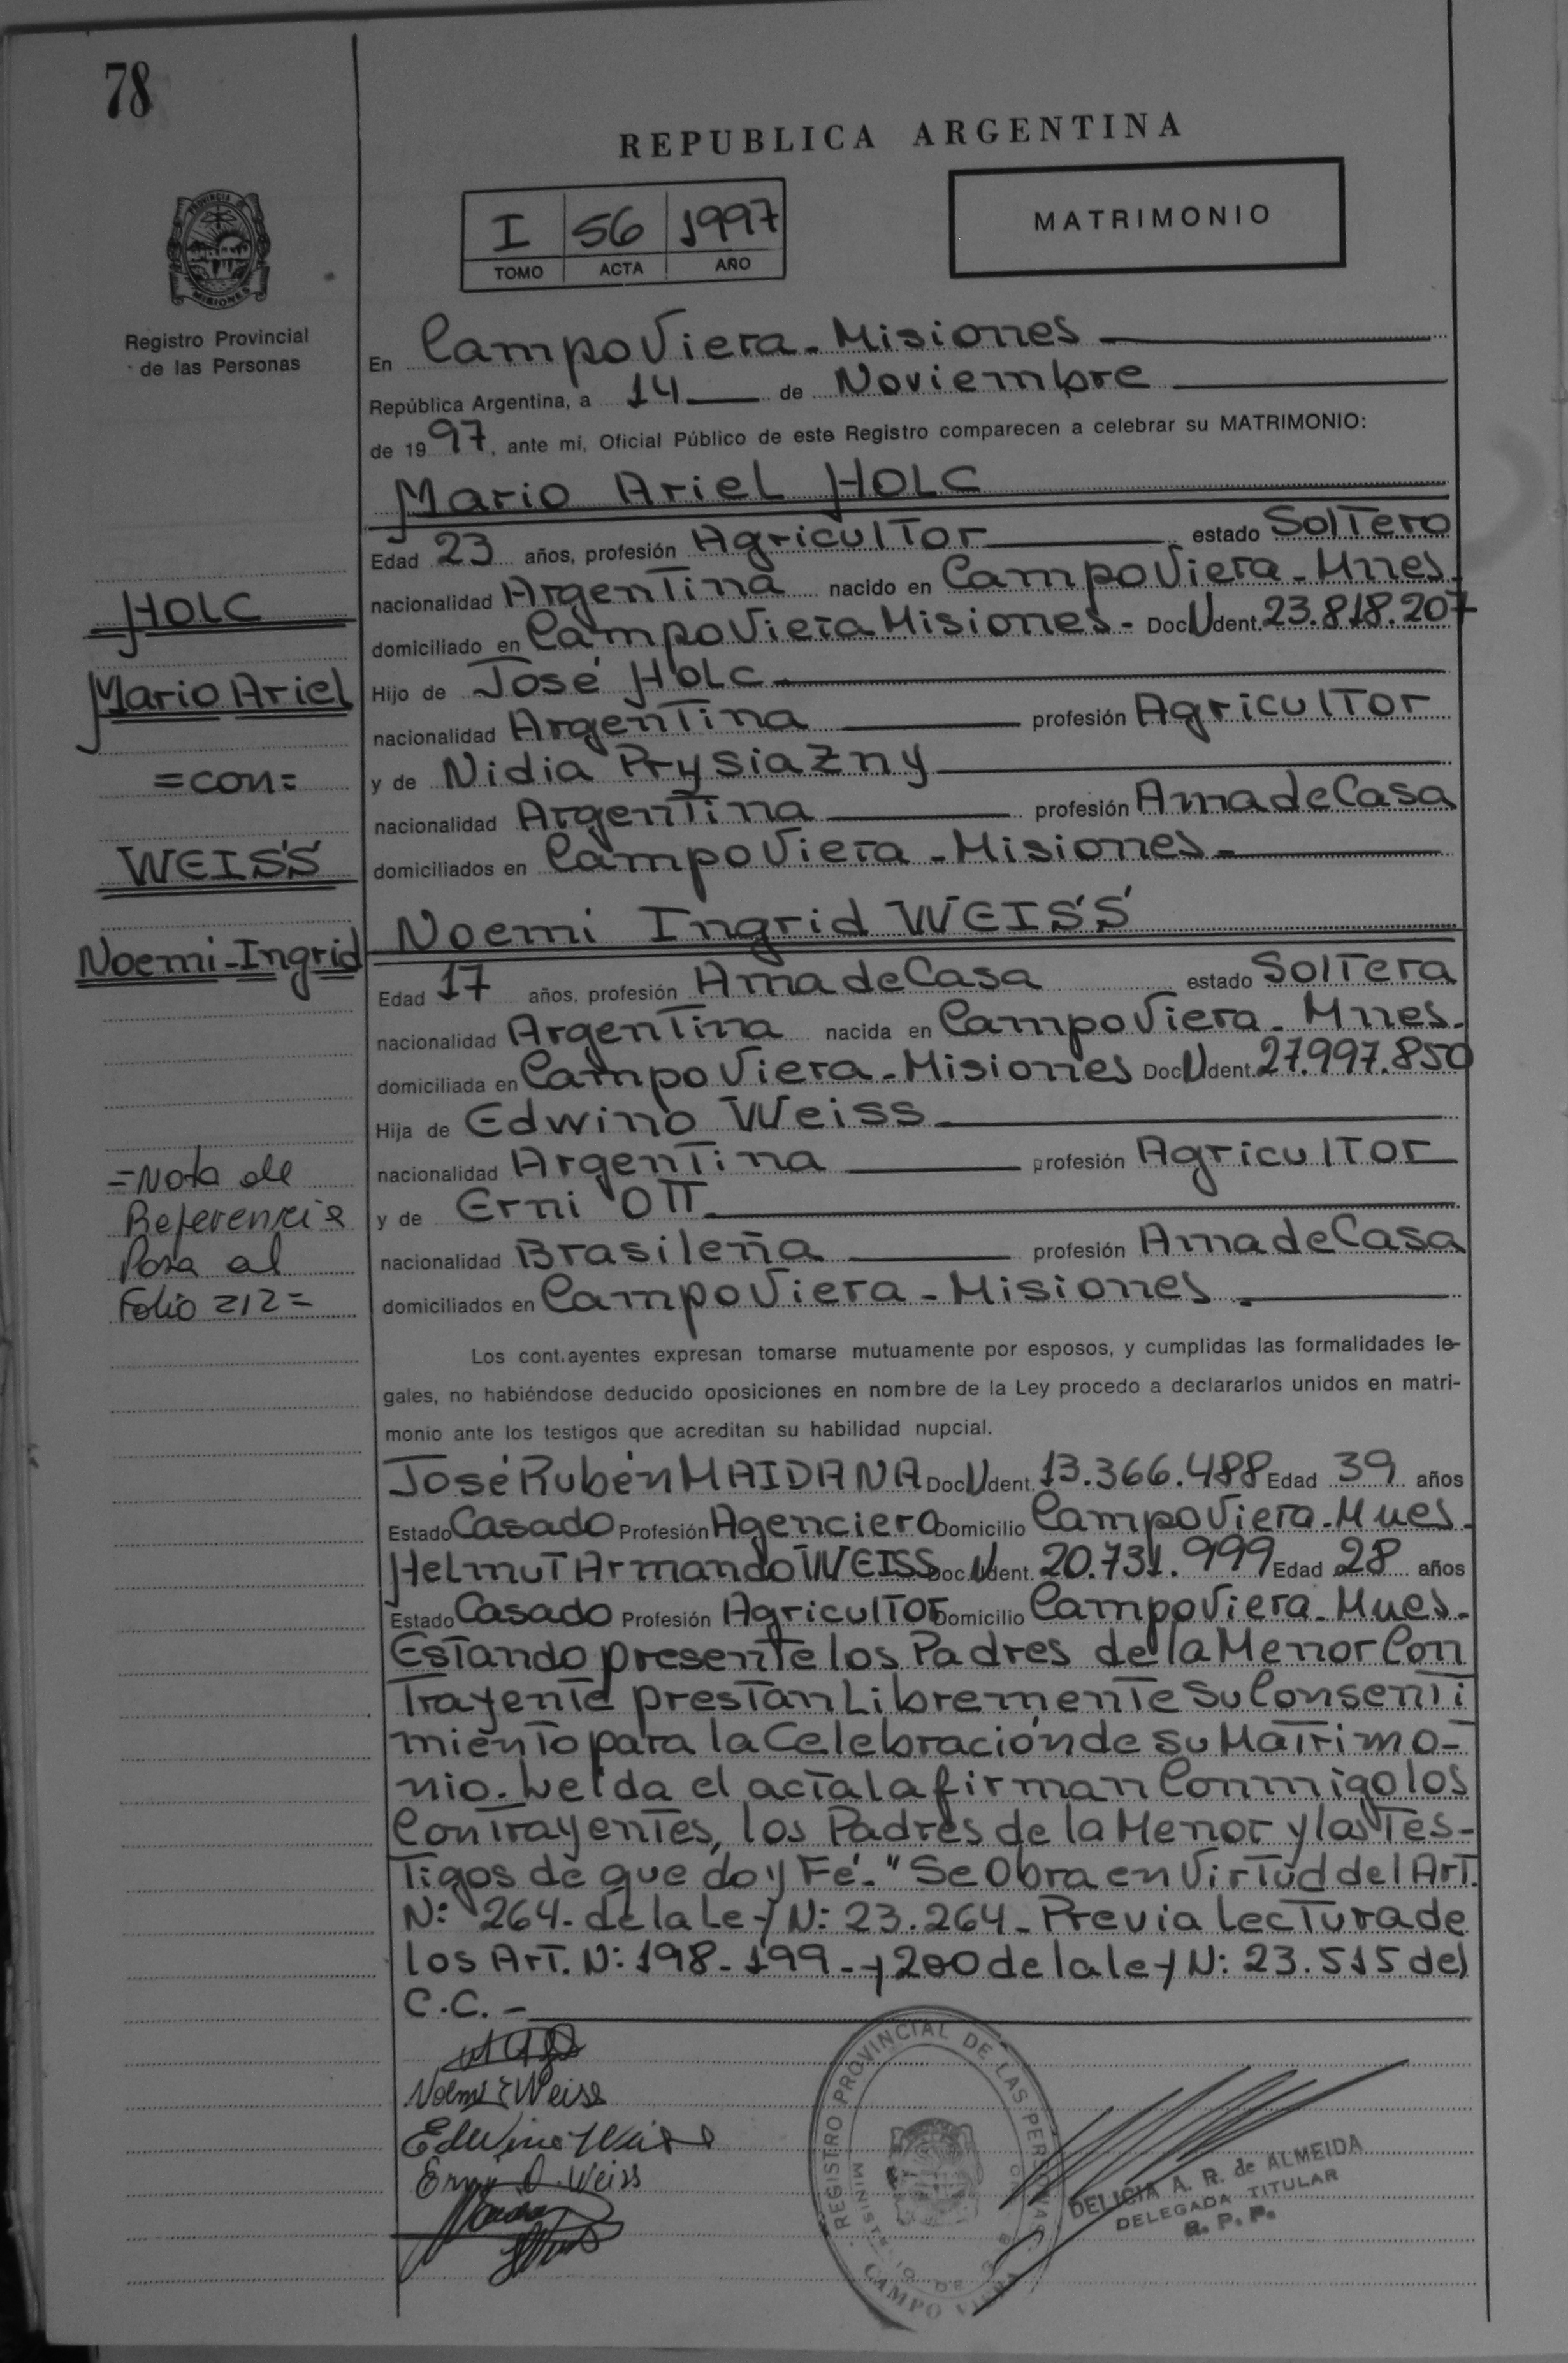 78
REPUBLICA ARGENTINA
I 56 1997
TOMO ACTA AÑO
MATRIMONIO
PROVINCIA DE
MISIONES
Registro Provincial
de las Personas
En CampoViera - Misiones
República Argentina, a 14 de Noviembre
de 1997, ante mi, Oficial Público de este Registro comparecen a celebrar su MATRIMONIO:
Mario Ariel HOLC
Edad 23 años, profesión Agricultor estado Soltero
nacionalidad Argentina nacido en CampoViera - Mnes.
domiciliado en CampoViera Misiones - Doc. U Ident. 23.818.207
Hijo de José Holc
nacionalidad Argentina profesión Agricultor
y de Nidia Prysiazny
nacionalidad Argentina profesión Ama de Casa
domiciliados en CampoViera - Misiones -
Noemi Ingrid WEISS
Edad 17 años, profesión Ama de Casa estado Soltera
nacionalidad Argentina nacida en CampoViera - Mnes.
domiciliada en CampoViera - Misiones Doc. U Ident. 27.997.850
Hija de Edwino Weiss
nacionalidad Argentina profesión Agricultor
y de Erni Ott
nacionalidad Brasileña profesión Ama de Casa
domiciliados en CampoViera - Misiones.
HOLC
Mario Ariel
=con=
WEISS
Noemi-Ingrid
=Nota de
Referencia
Pasa al
Folio 212=
Los cont.ayentes expresan tomarse mutuamente por esposos, y cumplidas las formalidades le-
gales, no habiéndose deducido oposiciones en nombre de la Ley procedo a declararlos unidos en matri-
monio ante los testigos que acreditan su habilidad nupcial.
José Rubén MAIDANA Doc. U Ident. 13.366.488 Edad 39 años
Estado Casado Profesión Agenciero Domicilio CampoViera - Mnes.
Helmut Armando WEISS Doc. U Ident. 20.731.999 Edad 28 años
Estado Casado Profesión Agricultor Domicilio CampoViera - Mnes.
Estando presente los Padres de la Menor Con
trayente prestan Libremente su Consenti
miento para la Celebración de su Matrimo-
nio. Leída el acta la firman Conmigo los
Contrayentes, los Padres de la Menor y los Tes-
tigos de que doy Fé.- "Se Obra en Virtud del Art.
N: 264 - de la Ley N: 23.264 - Previa Lectura de
los Art. N: 198 - 199 - y 200 de la ley N: 23.515 del
C.C. -
Noemi I Weiss
Edwino Weiss
Erni O. Weiss
REGISTRO PROVINCIAL DE LAS PERSONAS
CAMPO VIERA
DELICIA A. R. de ALMEIDA
DELEGADA TITULAR
R. P. P.